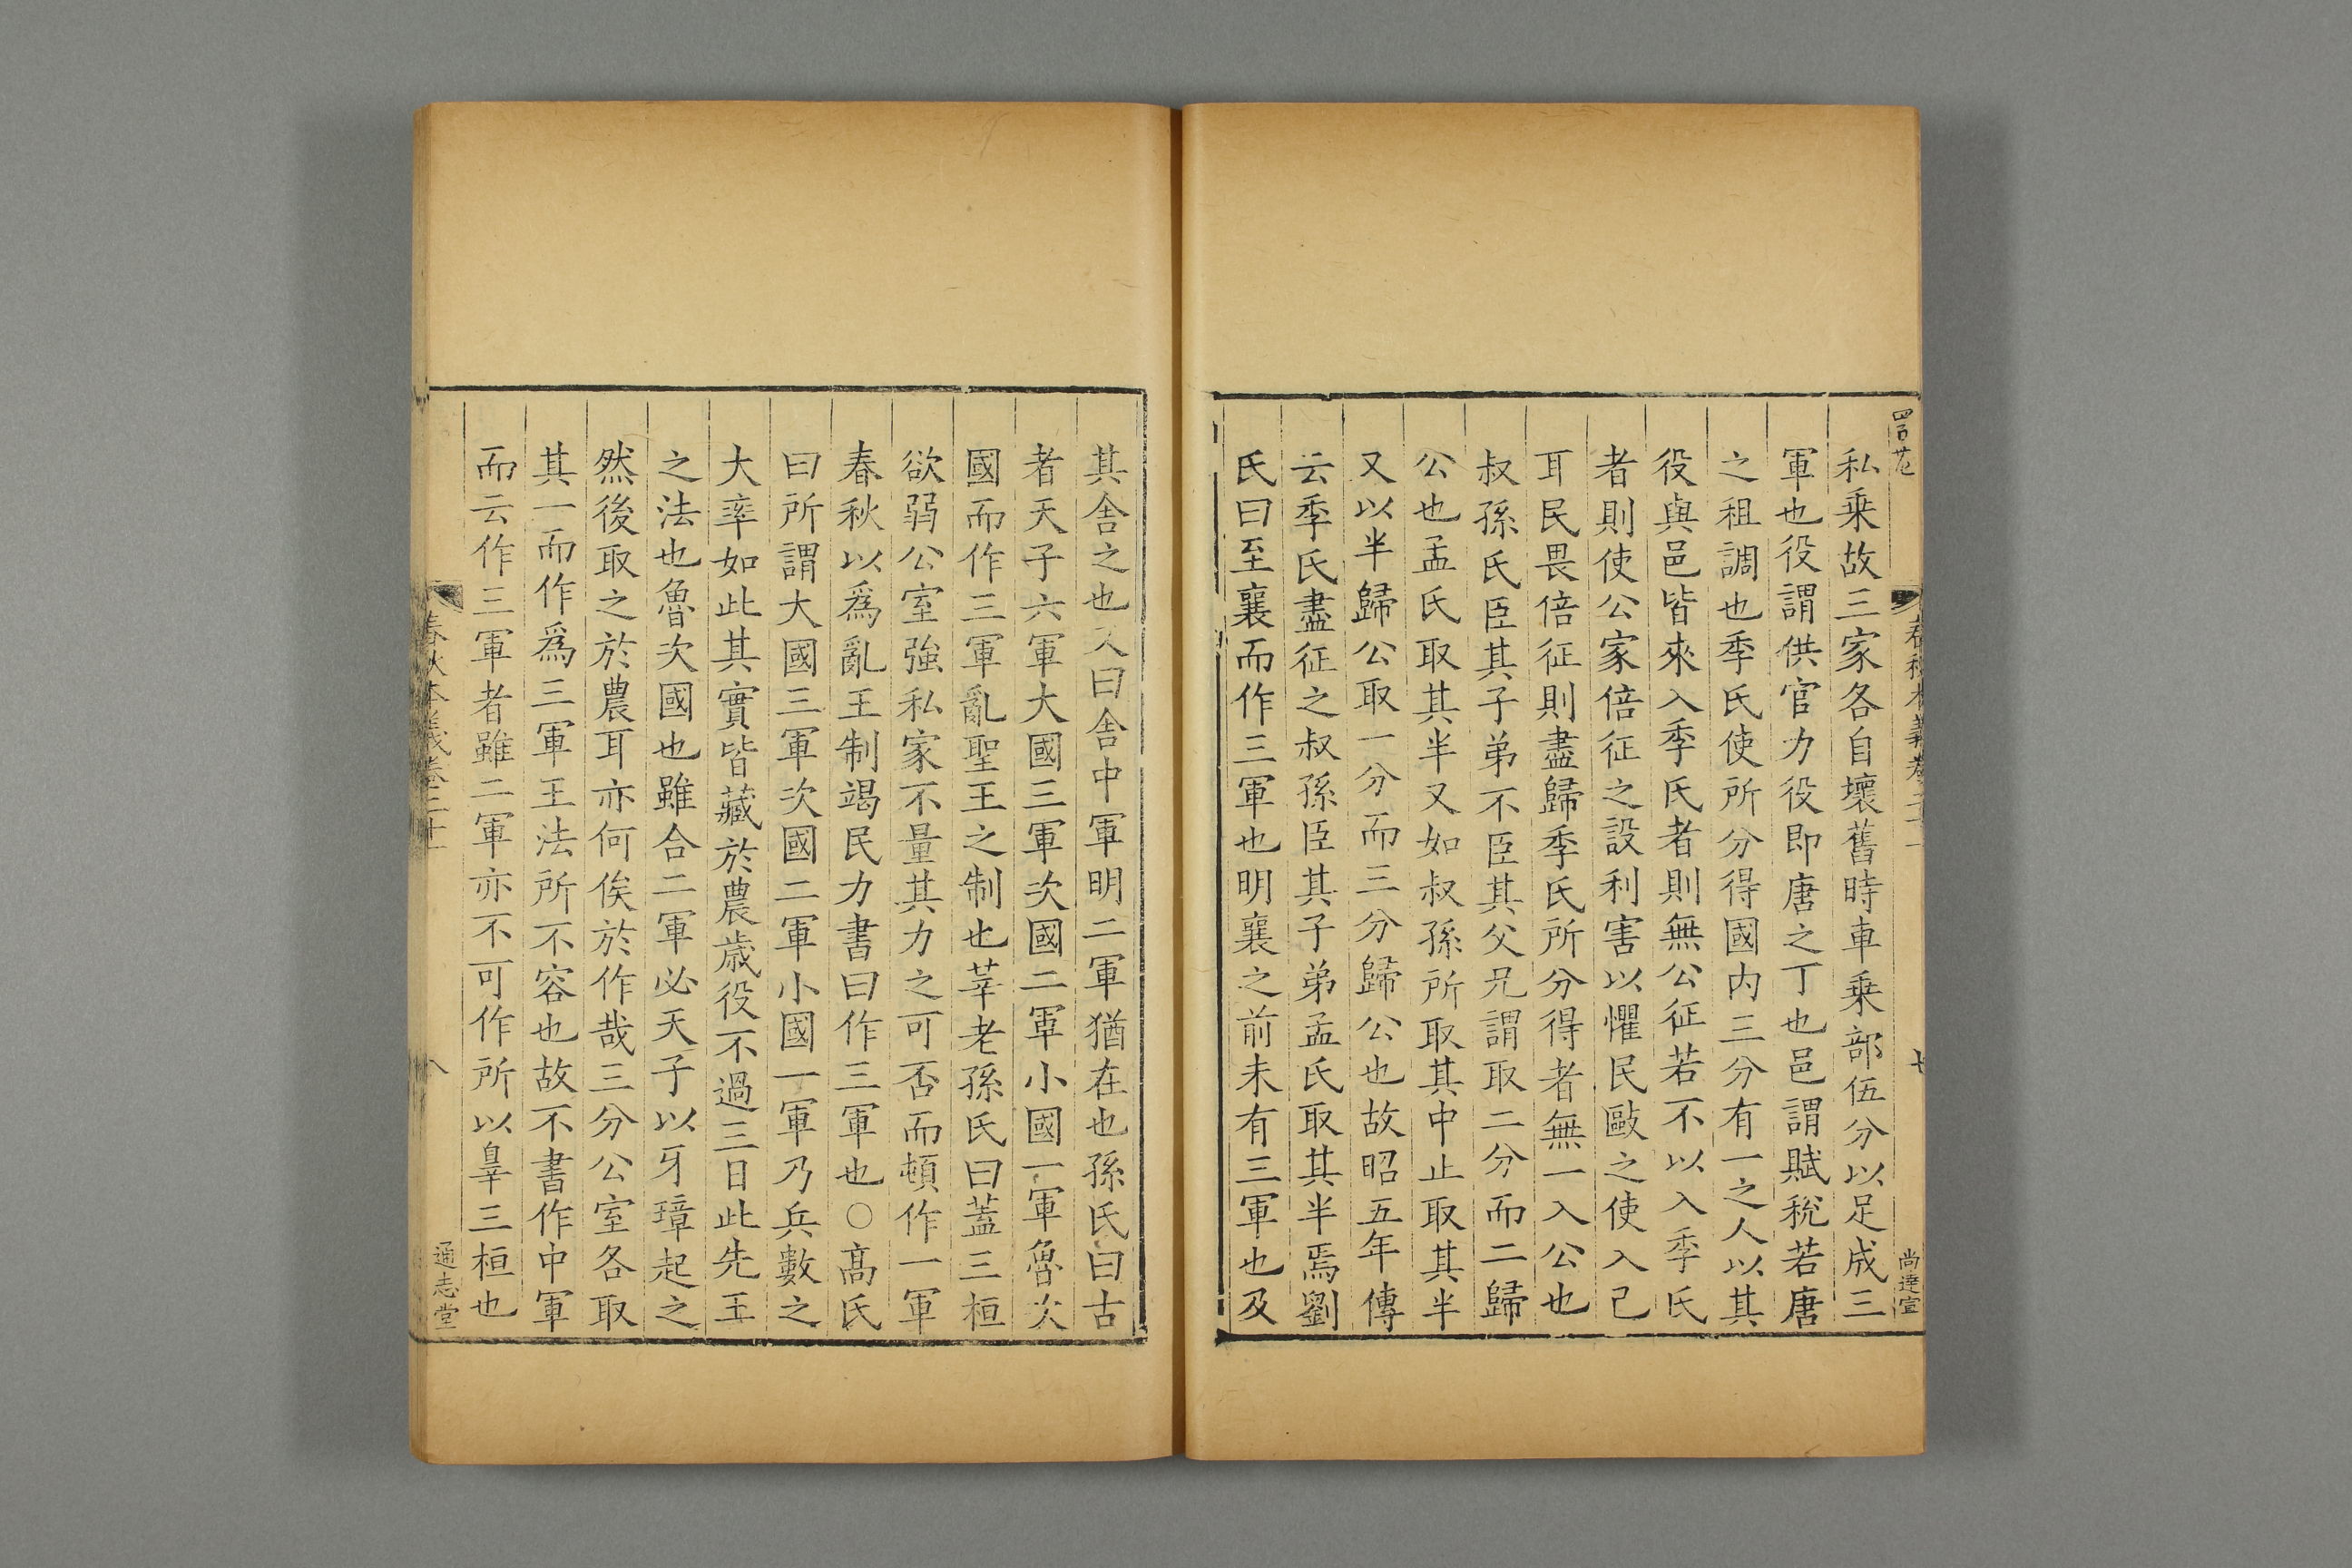 私乗故三家各自壞舊時車乗部伍分以足成三
軍也役謂供官力役即唐之丁也邑謂賦稅若唐
之租調也季氏使所分得國内三分有一之人以其
役與邑皆來入季氏者則無公征若不以入季氏
者則使公家倍征之設利害以懼民敺之使入己
耳民畏倍征則盡歸季氏所分得者無一入公也
叔孫氏臣其子弟不臣其父兄謂取二分而二歸
公也孟氏取其半又如叔孫所取其中止取其半
又以半歸公取一分而三分歸公也故昭五年傳
云季氏盡征之叔孫臣其子弟孟氏取其半焉劉
氏曰至襄而作三軍也明襄之前未有三軍也及
尚逹宣
其舎之也又曰舎中軍明二軍猶在也孫氏曰古
者天子六軍大國三軍次國二軍小國一軍魯次
國而作三軍亂聖王之制也莘老孫氏曰蓋三桓
欲弱公室強私家不量其力之可否而頓作一軍
春秋以爲亂王制竭民力書曰作三軍也○髙氏
曰所謂大國三軍次國二軍小國一軍乃兵數之
大率如此其實皆藏於農歲役不過三日此先王
之法也魯次國也雖合二軍必天子以牙璋起之
然後取之於農耳亦何俟於作哉三分公室各取
其一而作爲三軍王法所不容也故不書作中軍
而云作三軍者雖二軍亦不可作所以辠三桓也
春秋本義卷二十一
八
通志堂